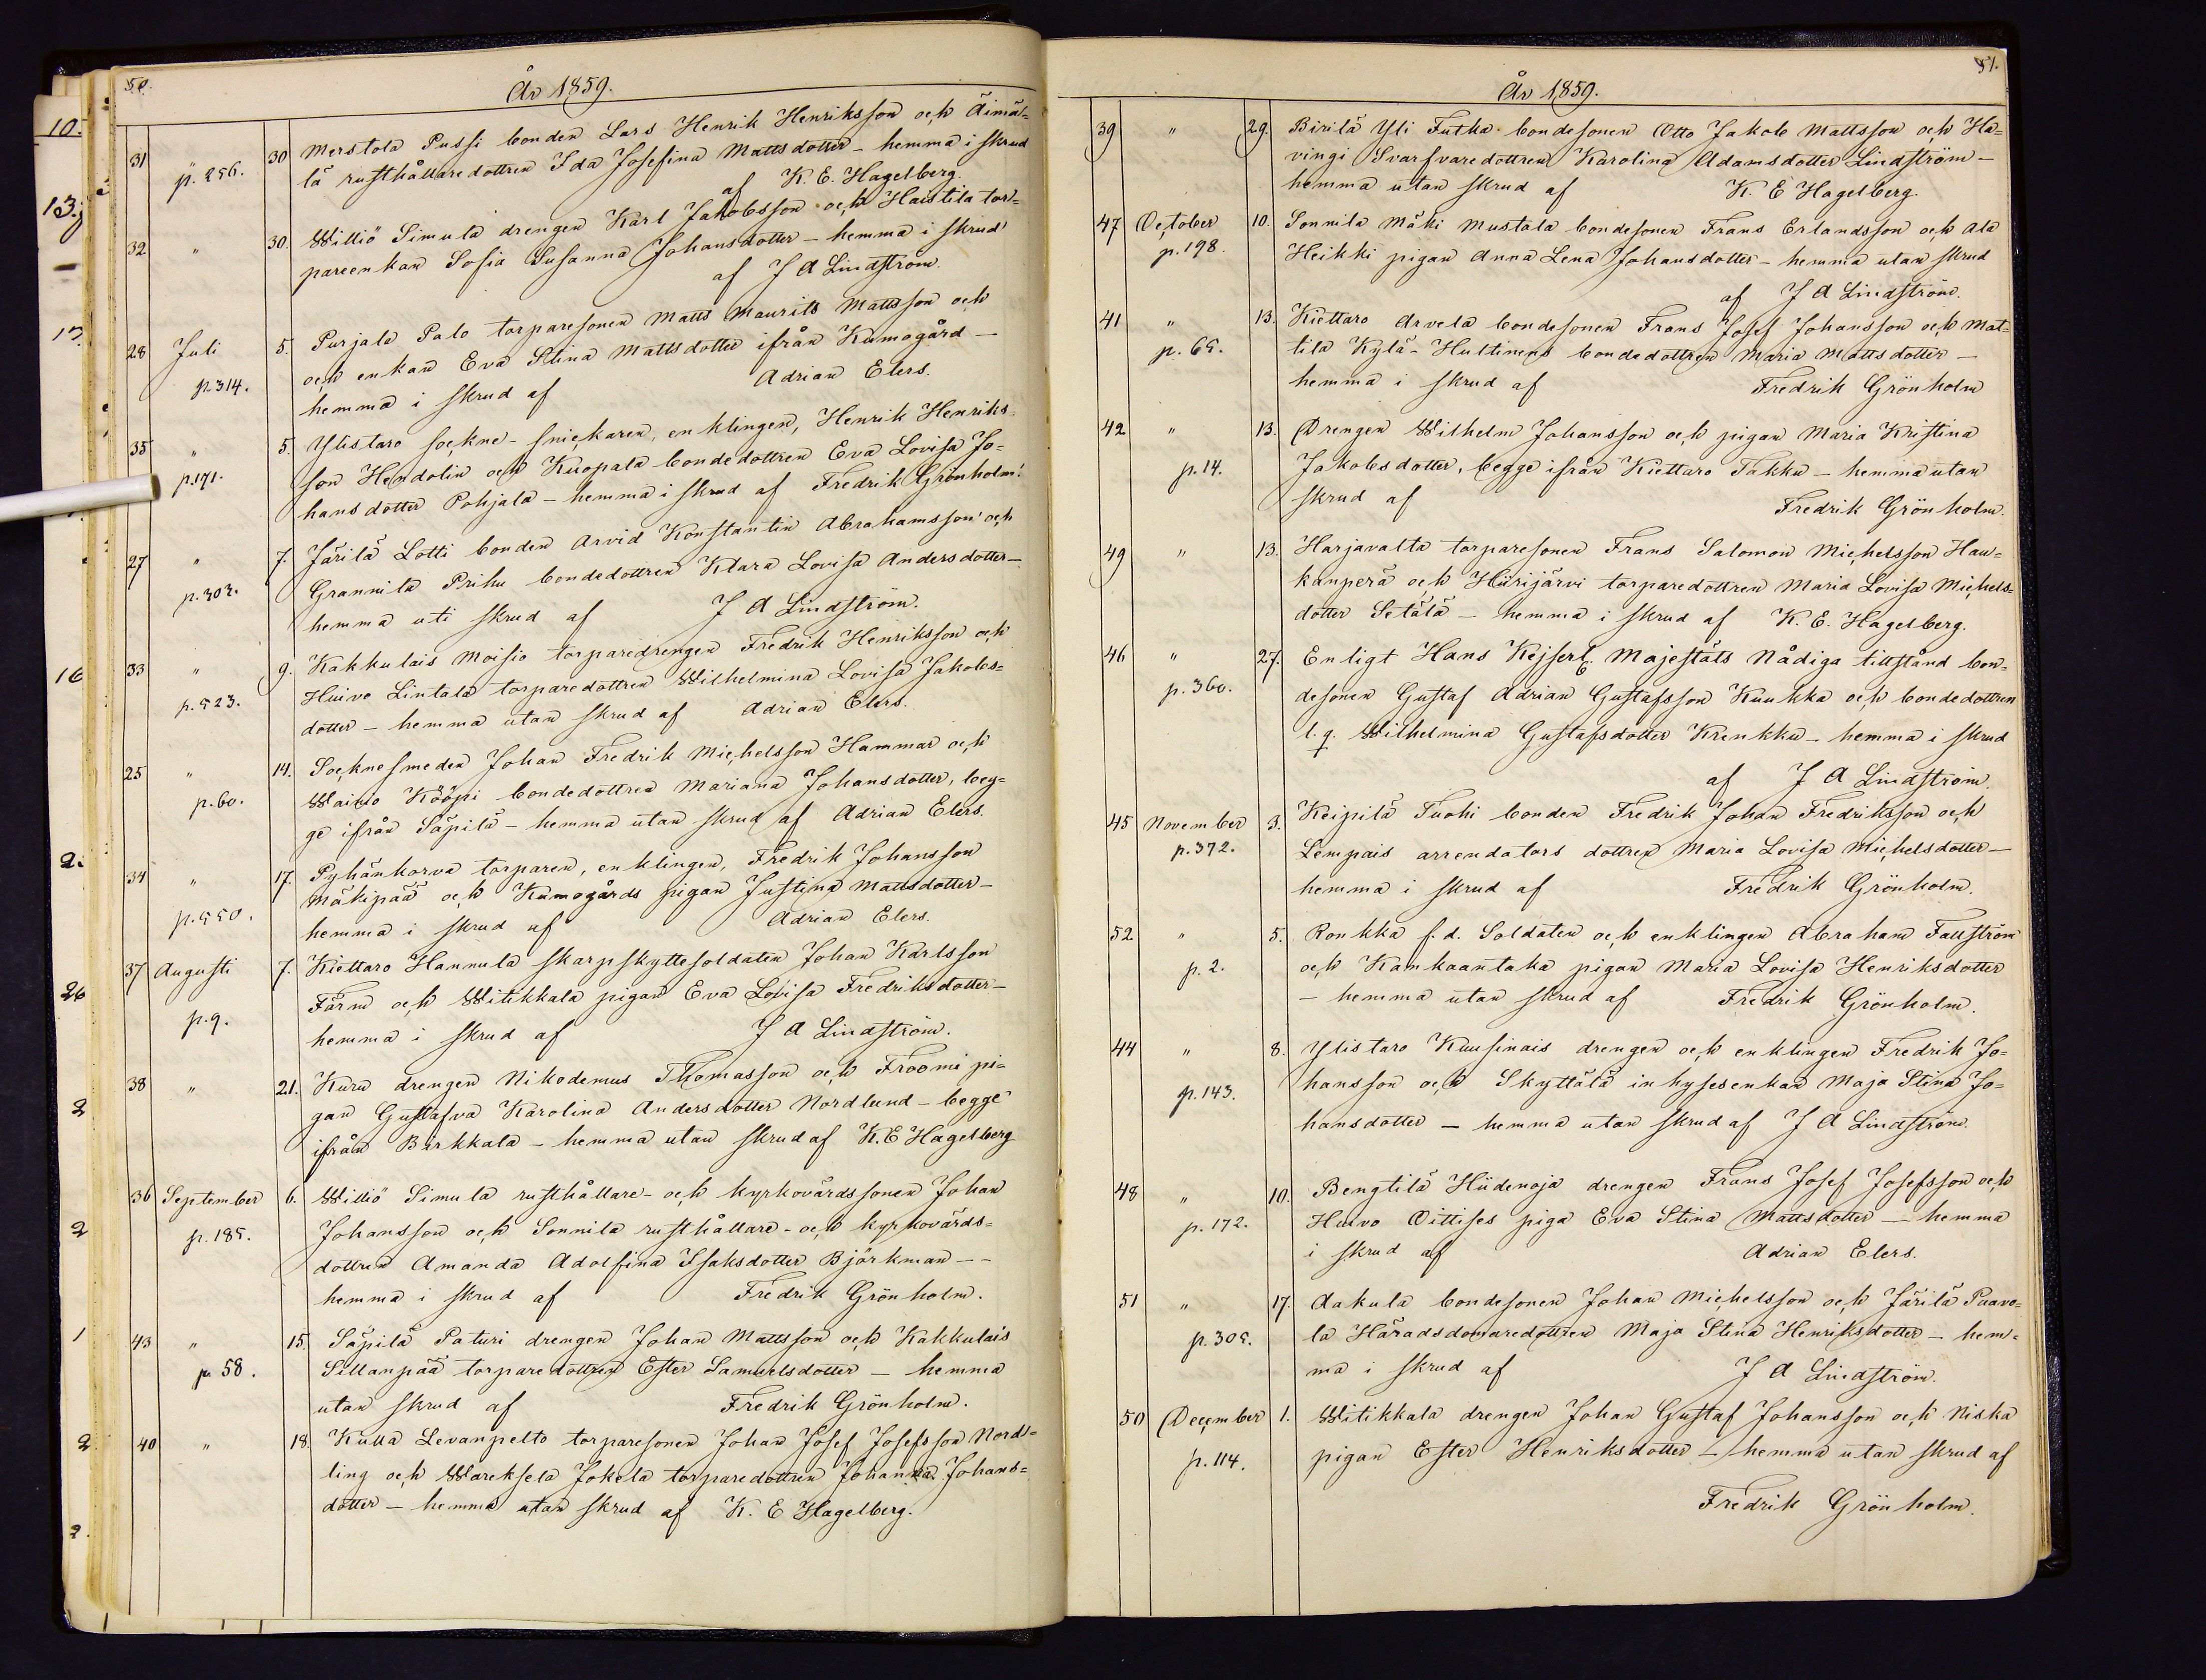 50.
År 1859.
31 " 30 Merstola Pussi bonden Lars Henrik Henriksson och Äimä-
p. 256. lä rusthållaredottren Ida Josefina Mattsdotter - hemma i skrud
af K. E. Hagelberg.
32 " 30. Williö Simula drengen Karl Jakobsson och Haistila tor-
pareenkan Sofia Susanna Johansdotter - hemma i skrud
af J A Lindström.
28 Juli 5. Purjala Palo torparesonen Matts Maurits Mattsson och
p. 314. och enkan Eva Stina Mattsdotter ifrån Kumogård -
hemma i skrud af Adrian Elers.
35 " 5. Ylistaro sockne-snickaren, enklingen, Henrik Henriks-
p. 171. son Hendolin och Kuopala bondedottren Eva Lovisa Jo-
hansdotter Pohjala - hemma i skrud af Fredrik Grönholm.
27 " 7. Järilä Lotti bonden Arvid Konstantin Abrahamsson och
p. 303. Grannila Prihu bondedottren Klara Lovisa Andersdotter -
hemma uti skrud af J A Lindström.
33 " 9. Kakkulais Moisio torparedrengen Fredrik Henriksson och
p. 523. Huivo Lintala torparedottren Wilhelmina Lovisa Jakobs-
dotter - hemma utan skrud af Adrian Elers.
25 " 14. Socknesmeden Johan Fredrik Michelsson Hammar och
p. 60. Wainio Kööpi bondedottren Mariana Johansdotter, beg-
ge ifrån Säpilä - hemma utan skrud af Adrian Elers.
34 " 17. Pyhänkorva torparen, enklingen, Fredrik Johansson
p. 550. Mäkipää och Kumogårds pigan Justina Mattsdotter -
hemma i skrud af Adrian Elers.
37 Augusti 7. Kiettaro Hannula skarpskyttesoldaten Johan Karlsson
p. 9. Färm och Witikkala pigan Eva Lovisa Fredriksdotter -
hemma i skrud af J A Lindström.
38 " 21. Kuru drengen Nikodemus Thomasson och Froomi pi-
gan Gustafva Karolina Andersdotter Nordlund - begge
ifrån Birkkala - hemma utan skrud af K. E Hagelberg
36 September 6. Williö Simula rusthållare- och kyrkovärdssonen Johan
p. 185. Johansson och Sonnila rusthållare- och kyrkovärds-
dottren Amanda Adolfina Isaksdotter Björkman - -
hemma i skrud af Fredrik Grönholm.
43 " 15. Säpilä Paturi drengen Johan Mattsson och Kakkulais
p. 58. Sillanpää torparedottren Ester Samuelsdotter - hemma
utan skrud af Fredrik Grönholm.
40 " 18. Kulla Levanpelto torparesonen Johan Josef Josefsson Nord-
ling och Wareksela Jokela torparedottren Johanna Johans-
dotter - hemma utan skrud af K. E Hagelberg.
51.
År 1859.
39 " 29. Birilä Yli Futka bondesonen Otto Jakob Mattsson och Ha-
vingi Svarfvaredottren Karolina Adamsdotter Lindström -
hemma utan skrud af K. E Hagelberg.
47 October 10. Sonnila Mäki Mustala bondesonen Frans Erlandsson och Ala
p. 198. Heikki pigan Anna Lena Johansdotter - hemma utan skrud
af J A Lindström.
41 " 13. Kiettaro Arvela bondesonen Frans Josef Johansson och Mat-
p. 65. tila Kylä-Hultinens bondedottren Maria Mattsdotter -
hemma i skrud af Fredrik Grönholm
42 " 13. Drengen Wilhelm Johansson och pigan Maria Kristina
p. 14. Jakobsdotter, begge ifrån Kiettaro Takku - hemma utan
skrud af Fredrik Grönholm.
49 " 13. Harjavalta torparesonen Frans Salomon Michelsson Hau-
kanperä och Hiirijärvi torparedottren Maria Lovisa Michels-
dotter Setälä - hemma i skrud af K. E. Hagelberg.
46 " 27. Enligt Hans Kejserl. Majestäts Nådiga tillstånd bon-
p. 360. desonen Gustaf Adrian Gustafsson Kuukka och bondedottren
l. q. Wilhelmina Gustafsdotter Krenkku - hemma i skrud
af J A Lindström.
45 November 3. Keipilä Tuohi bonden Fredrik Johan Fredriksson och
p. 372. Lempais arrendators dottren Maria Lovisa Michelsdotter -
hemma i skrud af Fredrik Grönholm.
52 " 5. Ronkka f. d. Soldaten och enklingen Abraham Fallström
p. 2. och Kankaantaka pigan Maria Lovisa Henriksdotter
- hemma utan skrud af Fredrik Grönholm.
44 " 8. Ylistaro Kuusinais drengen och enklingen Fredrik Jo-
p. 143. hansson och Skyttälä inhysesenkan Maja Stina Jo-
hansdotter - hemma utan skrud af J A Lindström.
48 " 10. Bengtilä Hiidenoja drengen Frans Josef Josefsson och
p. 172. Huivo Oittises piga Eva Stina Mattsdotter - hemma
i skrud af Adrian Elers.
51 " 17. Aakula bondesonen Johan Michelsson och Järilä Paavo-
p. 305. la Häradsdomaredottren Maja Stina Henriksdotter - hem-
ma i skrud af J A Lindström.
50 December 1. Witikkala drengen Johan Gustaf Johansson och Niska
p. 114. pigan Ester Henriksdotter - hemma utan skrud af
Fredrik Grönholm.